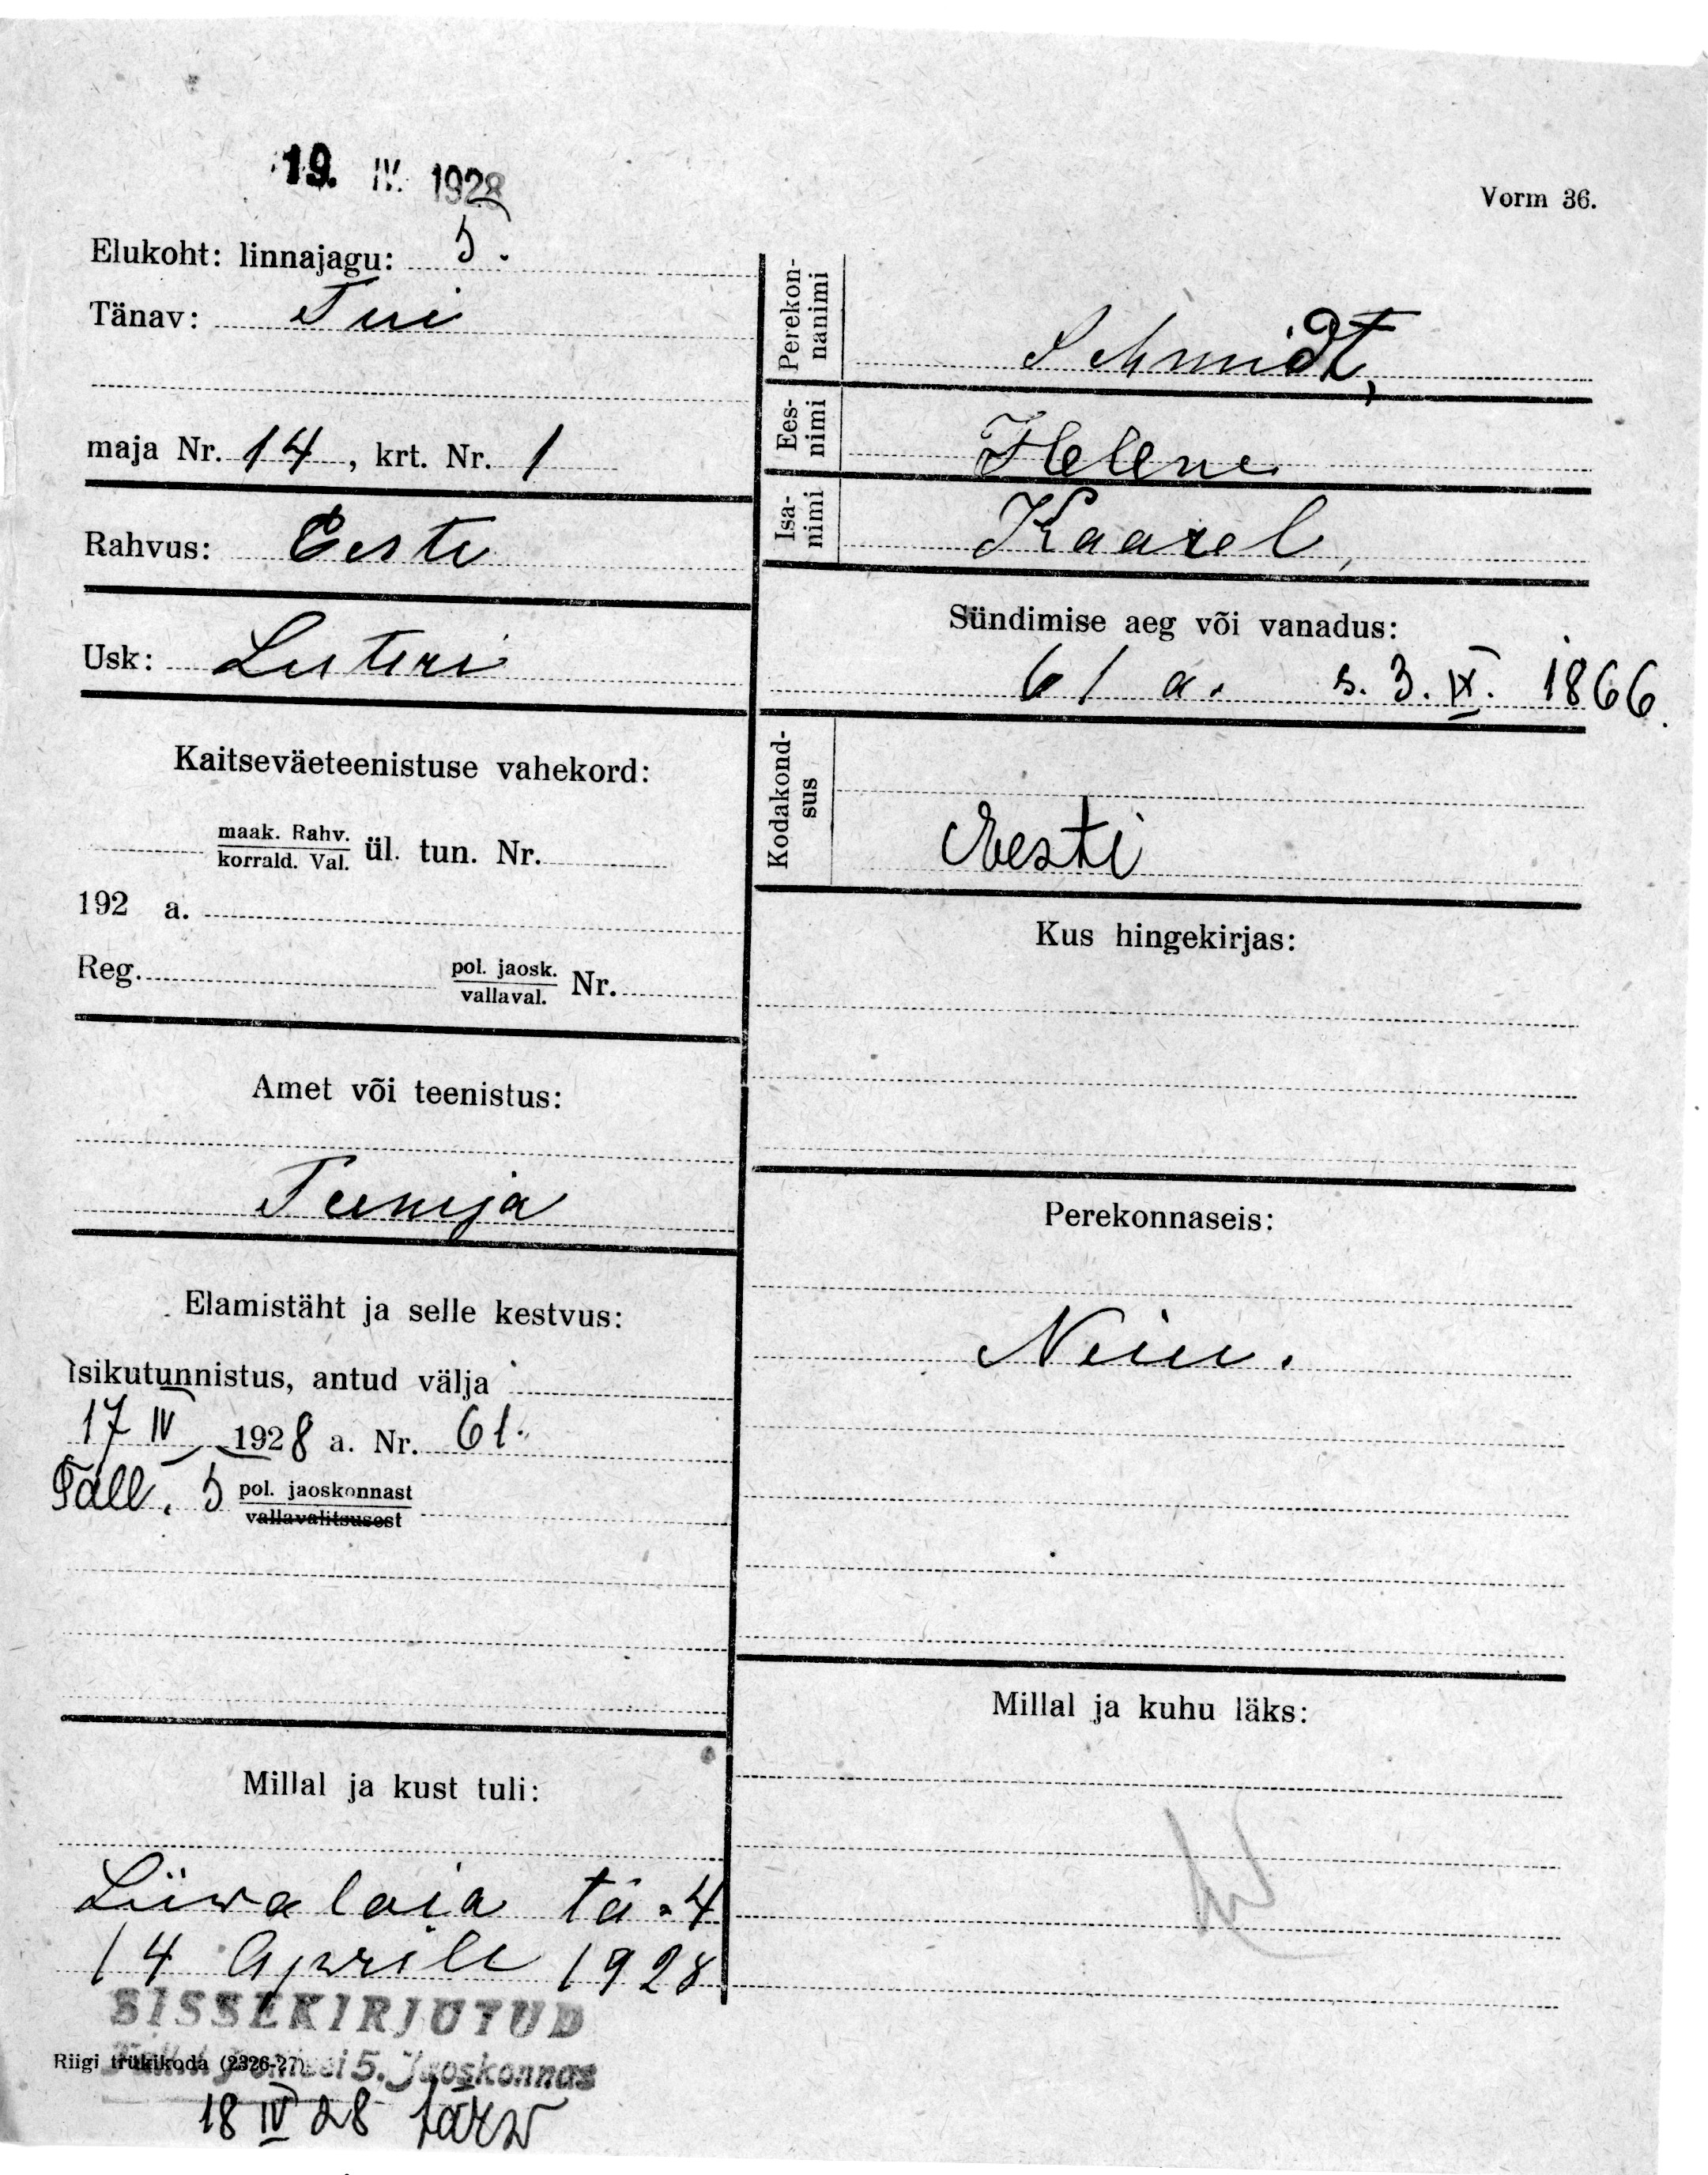 19. IV. 1928
Vorm 36.
Elukoht: linnajagu: 5.
Tänav: Turi
maja Nr. 14, krt. Nr. 1
Rahvus: Eesti
Usk: Luteri
Kaitseväeteenistuse vahekord:
maak. Rahv.
korrald. Val. ül. tun. Nr.
192 a.
Reg. pol. jaosk.
vallaval. Nr.
Amet või teenistus:
Teenija
Elamistäht ja selle kestvus:
Isikutunnistus, antud välja
17 IV 1928 a. Nr. 61.
Tall. 5 pol. jaoskonnast
vallavalitsusest
Millal ja kust tuli:
Liiwa laia tä. 4
14 Aprill 1928
SISSEKIRJUTUD
Riigi trükikoda (2326-27)
Politsei 5. Jaoskonnas
18 IV 28
Perekon-
nanimi
Schmidt,
Ees-
nimi
Helene
Isa-
nimi
Kaarel,
Sündimise aeg või vanadus:
61 a. s. 3. IX. 1866.
Kodakond-
sus
Eesti
Kus hingekirjas:
Perekonnaseis:
Neiu.
Millal ja kuhu läks: